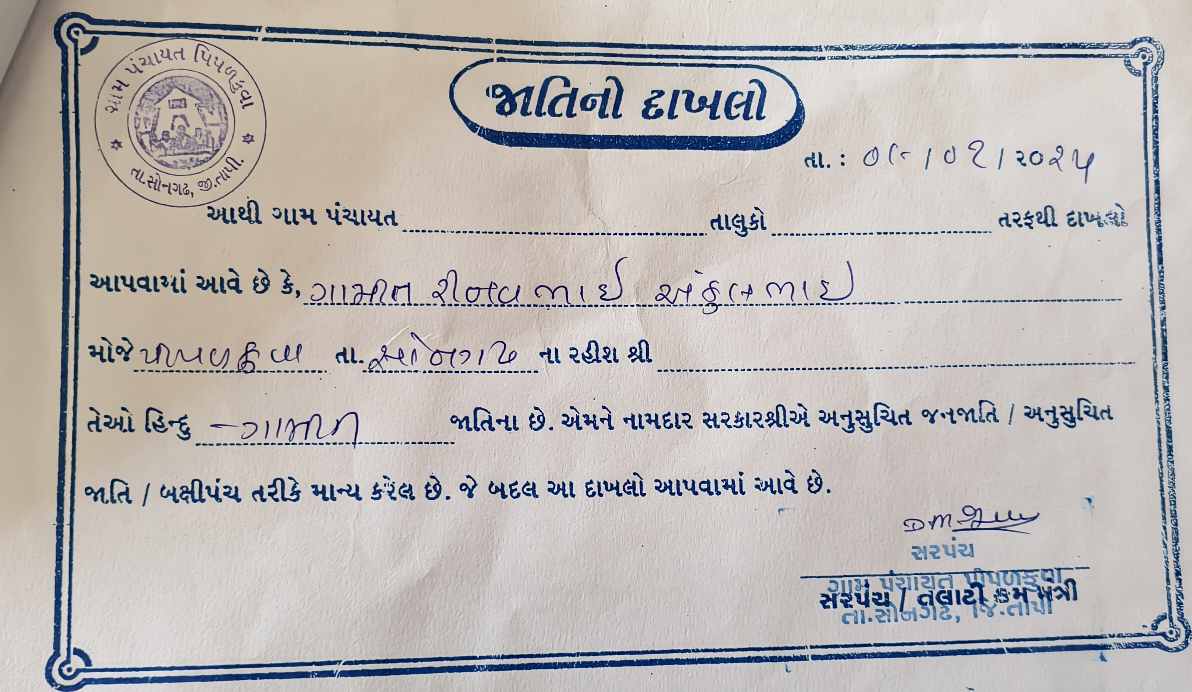 ગ્રામ પંચાયત પિપળકુવા
તા.સોનગઢ, જી.તાપી.
જાતિનો દાખલો
તા. : 01 / 02 / ૨૦૨૫
આથી ગામ પંચાયત તાલુકો તરફથી દાખલો
આપવામાં આવે છે કે, ગામીત ભાઈ ભાઈ
મોજે પીપળકુવા તા. સોનગઢ ના રહીશ શ્રી
તેઓ હિન્દુ ગામીત જાતિના છે. એમને નામદાર સરકારશ્રીએ અનુસુચિત જનજાતિ / અનુસુચિત
જાતિ / બક્ષીપંચ તરીકે માન્ય કરેલ છે. જે બદલ આ દાખલો આપવામાં આવે છે.
સરપંચ
ગ્રામ પંચાયત પીપળકુવા
સરપંચ / તલાટી કમ મંત્રી
તા.સોનગઢ, જિ.તાપી